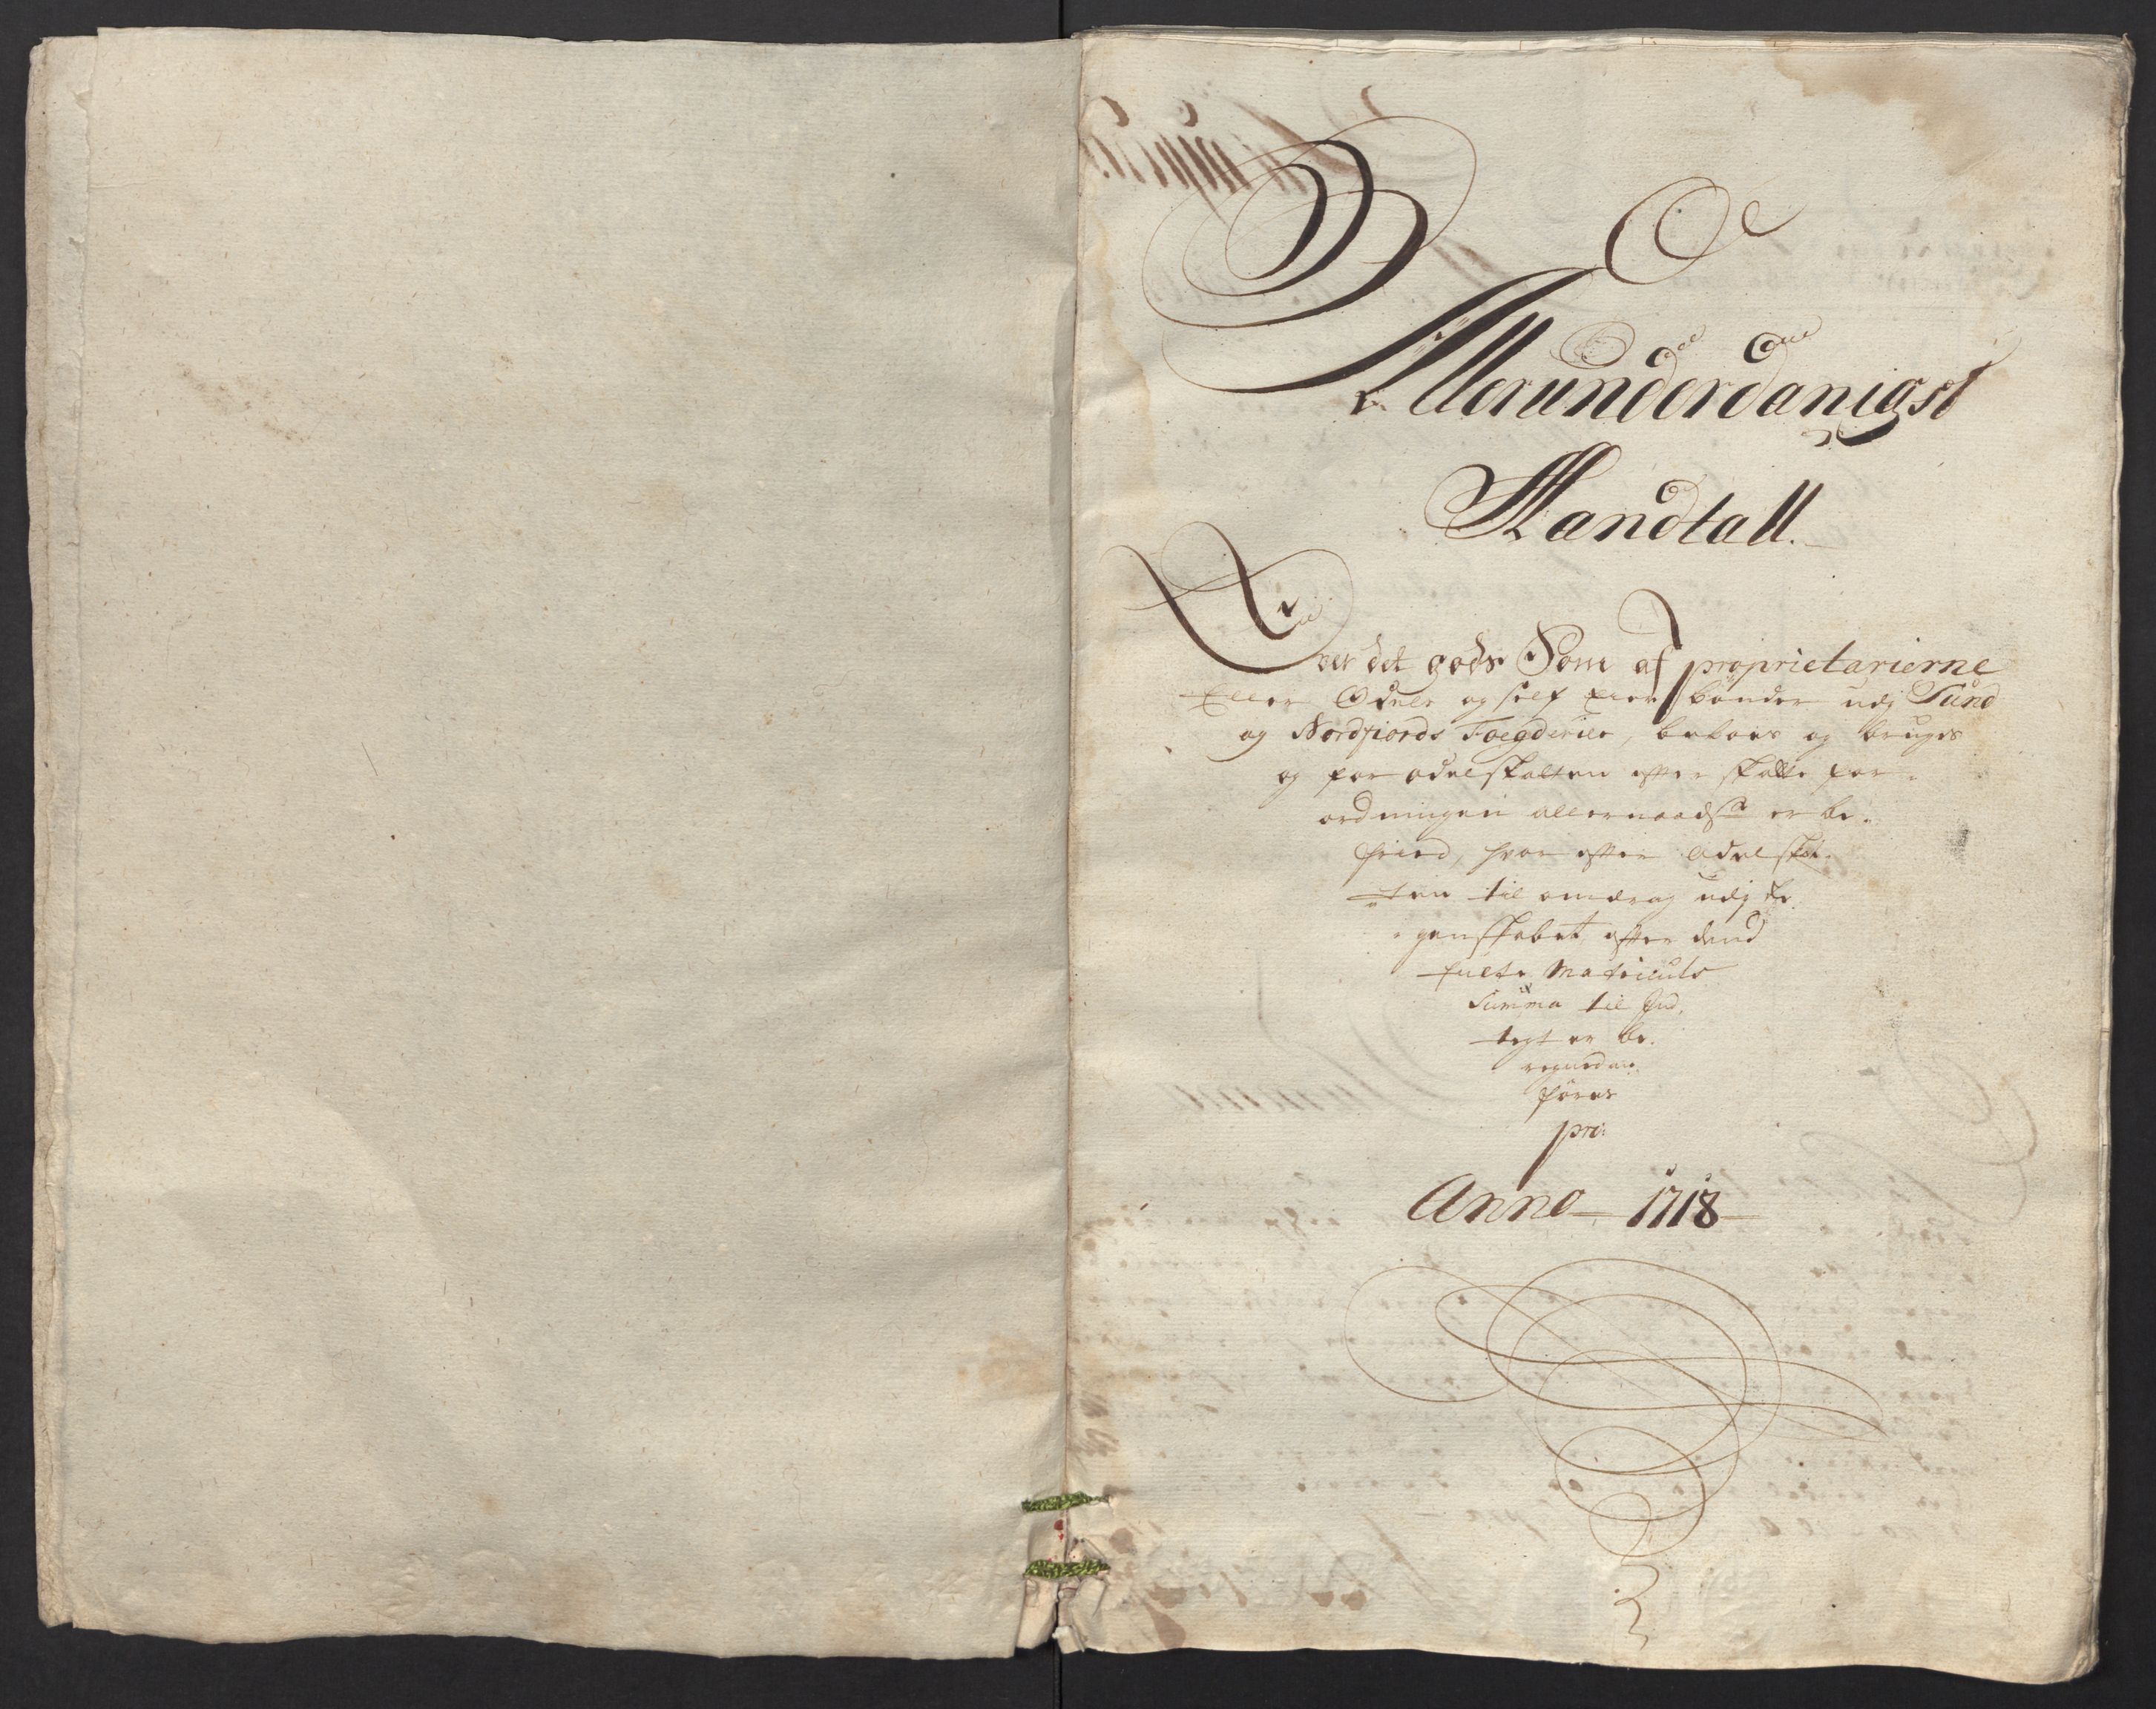 Allerunderdanigst
Mandtall.
Over det gods Som af proprietarierne
Eller Odels og self Eier bönder udj Sund
og Nordfiords Foegderier, beboes og bruges
og for odelskatten efter skatte for-
ordningen allernaadst er be-
friied, hvor efter Odelskat-
ten til omdrag udj Re-
genskabet, efter dend
fulte Matriculs
Summa til Ind-
tegt er be-
regned an-
föres
pro:
Anno 1718